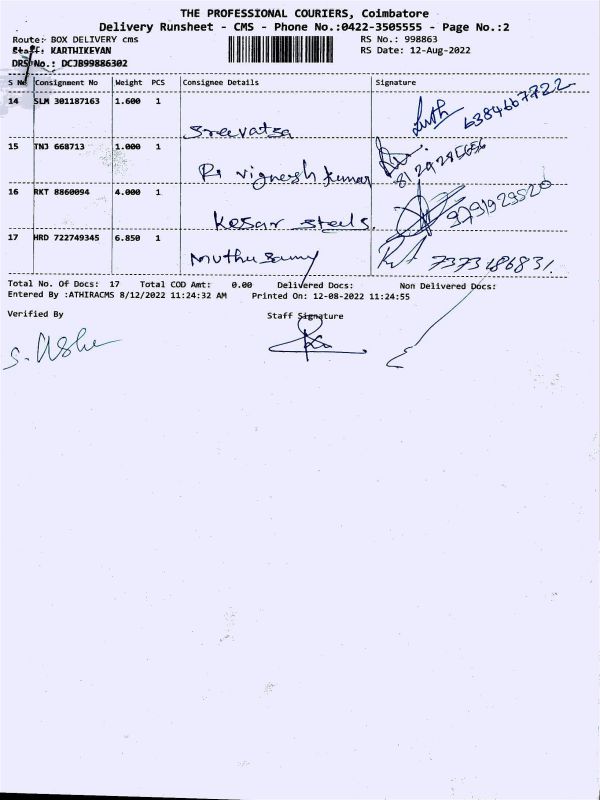 THE PROFESSIONAL COURIERS, Coimbatore
Delivery Runsheet - CMS - Phone No.:0422-3505555 - Page No.:2
Route:- BOX DELIVERY cms RS No.: 998863
Staff: KARTHIKEYAN RS Date: 12-Aug-2022
DRS No.: DCJB99886302
S No Consignment No Weight PCS Consignee Details Signature
14 SLM 301187163 1.600 1
Sreevatsa 6384667722
15 TNJ 668713 1.000 1
R. vignesh kumar
16 RKT 8860094 4.000 1
Kesar steels. 9791929520
17 HRD 722749345 6.850 1
Muthu samy 7373486831.
Total No. Of Docs: 17 Total COD Amt: 0.00 Delivered Docs: Non Delivered Docs:
Entered By :ATHIRACMS 8/12/2022 11:24:32 AM Printed On: 12-08-2022 11:24:55
Verified By Staff Signature